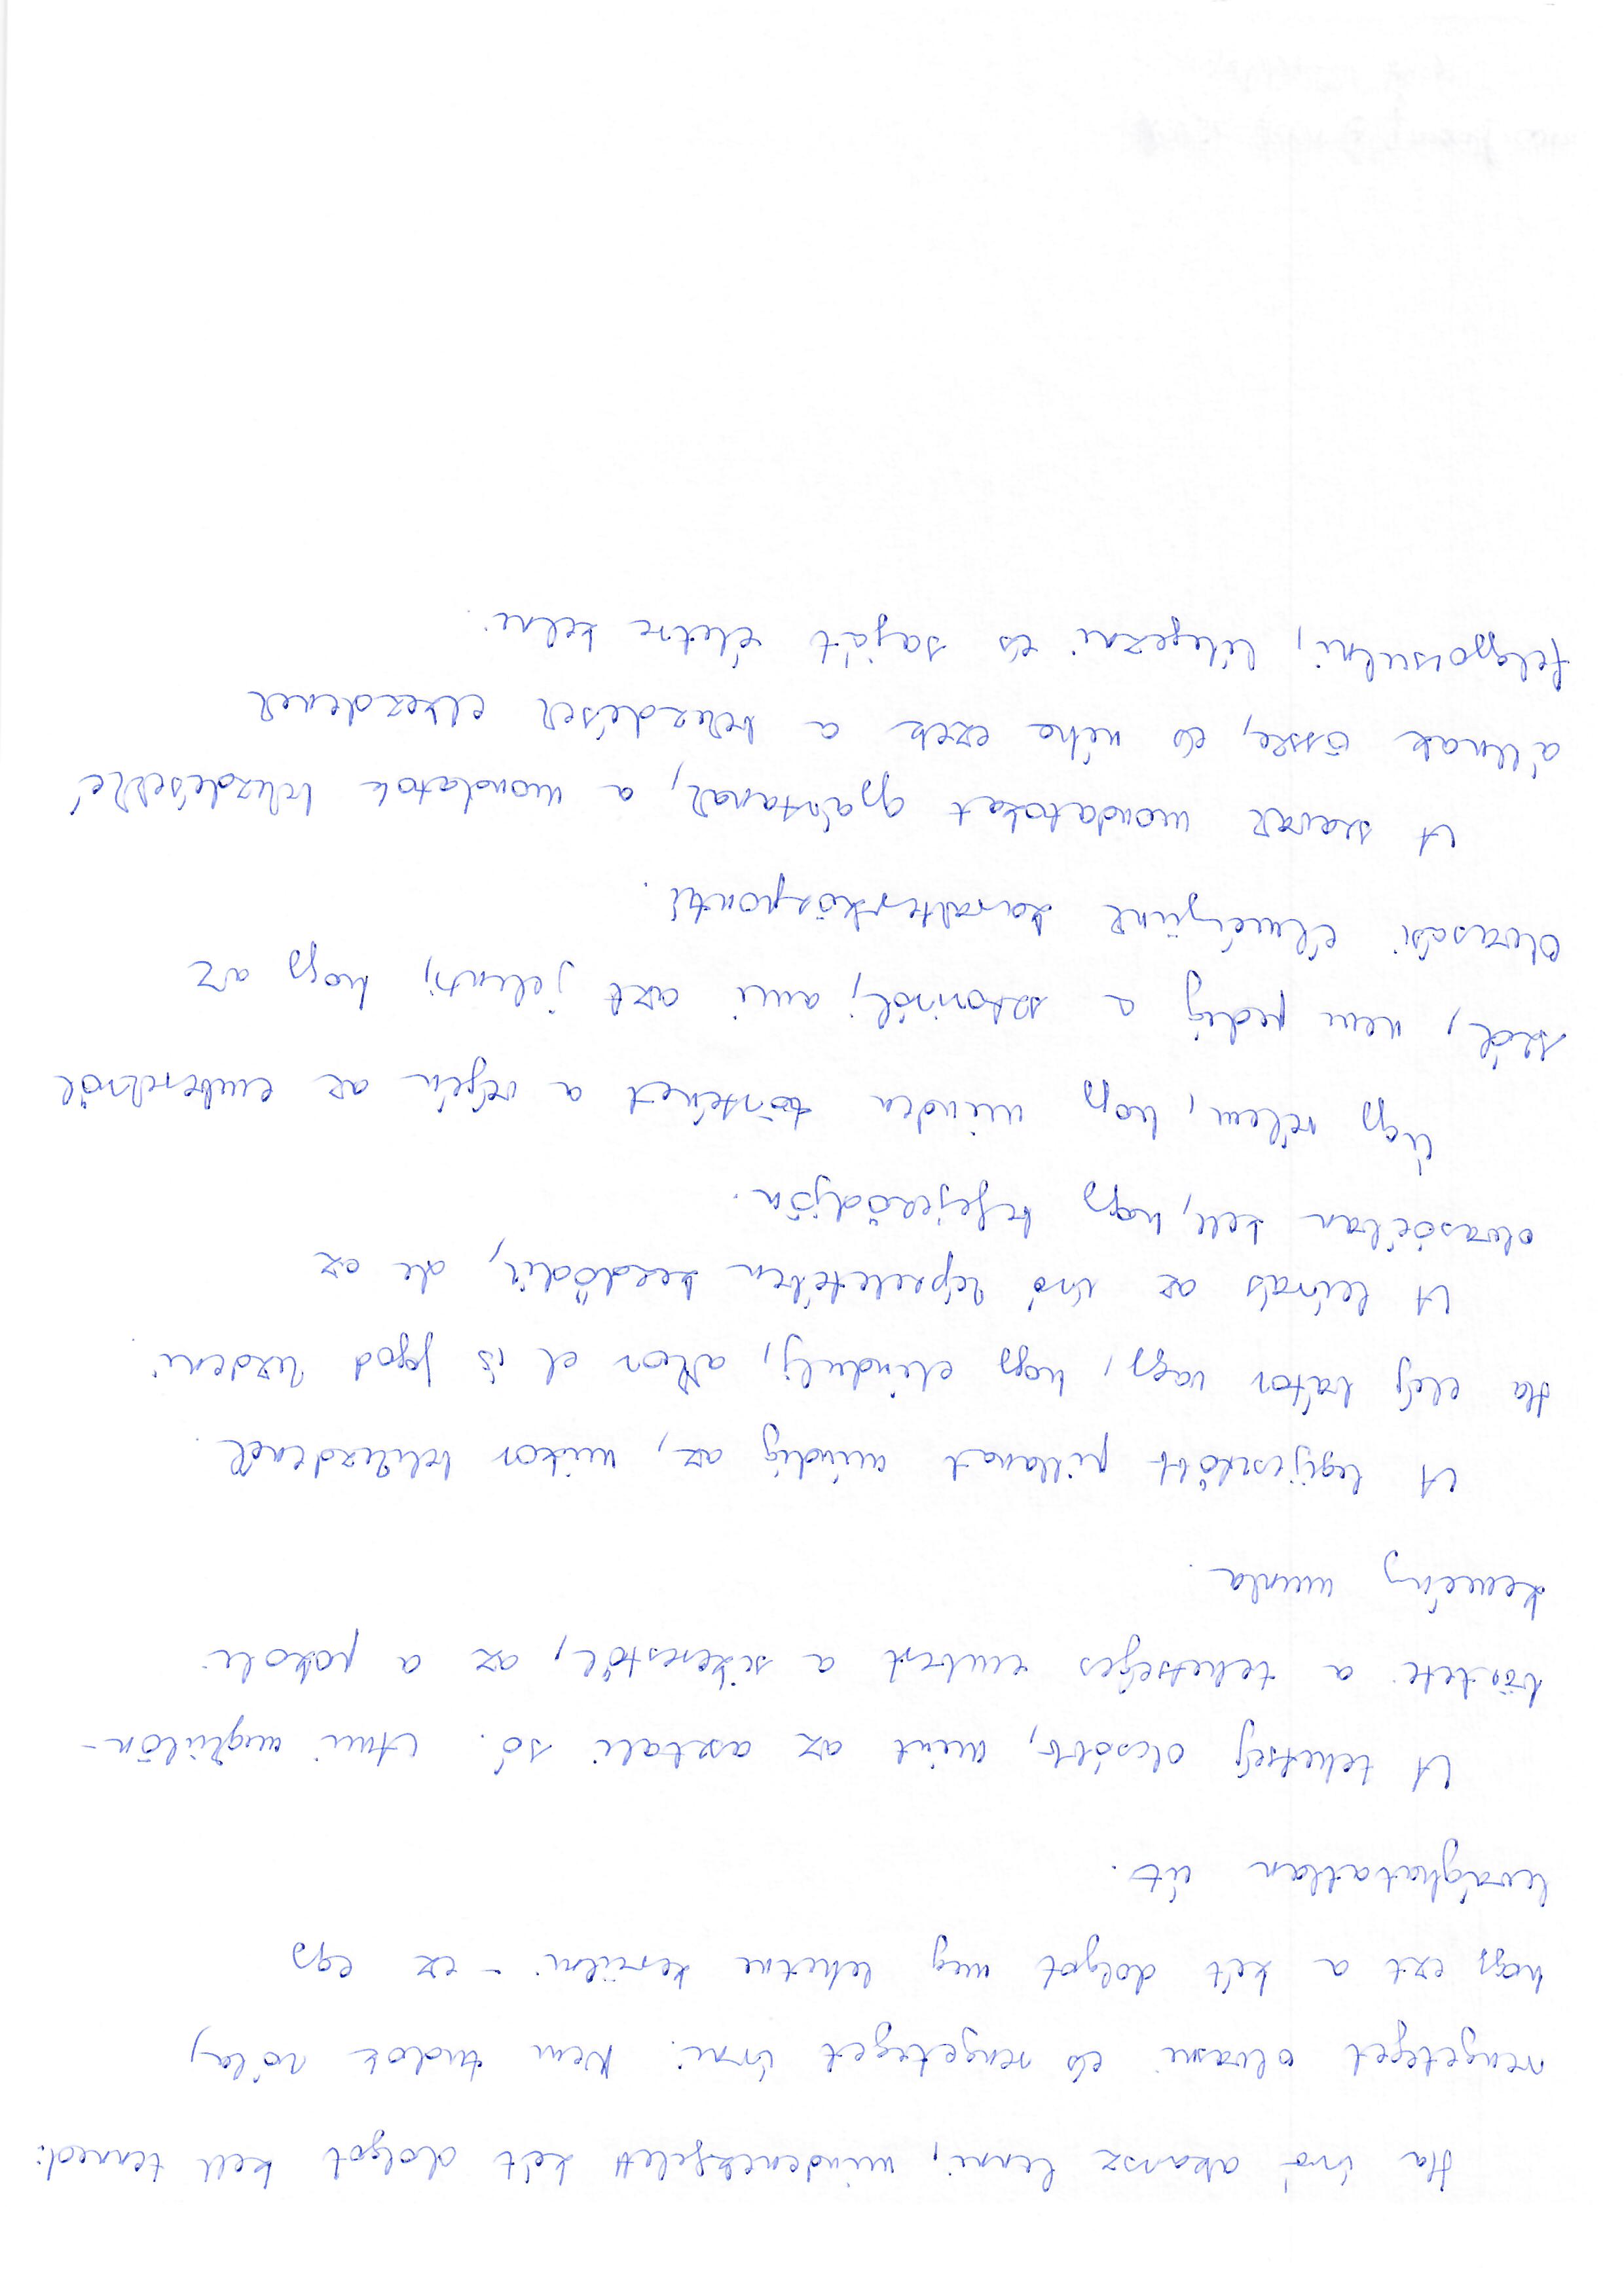 Ha író akarsz lenni, mindenekfelett két dolgot kell tenned:
rengeteget olvasni és rengeteget írni. Nem tudok róla,
hogy ezt a két dolgot meg lehetne kerülni - ez egy
levághatatlan út.
A tehetség olcsóbb, mint az asztali só. Ami megkülön-
bözteti a tehetséges embert a sikerestől, az a pokoli
kemény munka.
A legijesztőbb pillanat mindig az, mikor belekezdenél.
Ha elég bátor vagy, hogy elindulj, akkor el is fogod kezdeni.
A leírás az író képzeletében kezdődik, de az
olvasóéban kell, hogy befejeződjön.
Úgy vélem, hogy minden történet a végén az emberekről
szól, nem pedig a sztoriról; ami azt jelenti, hogy az
olvasási élményünk karakterközpontú.
A szavak mondatokat gyártanak, a mondatok bekezdésekké
állnak össze, és néha ezek a bekezdések elkezdenek
felgyorsulni, lélegezni és saját életre kelni.